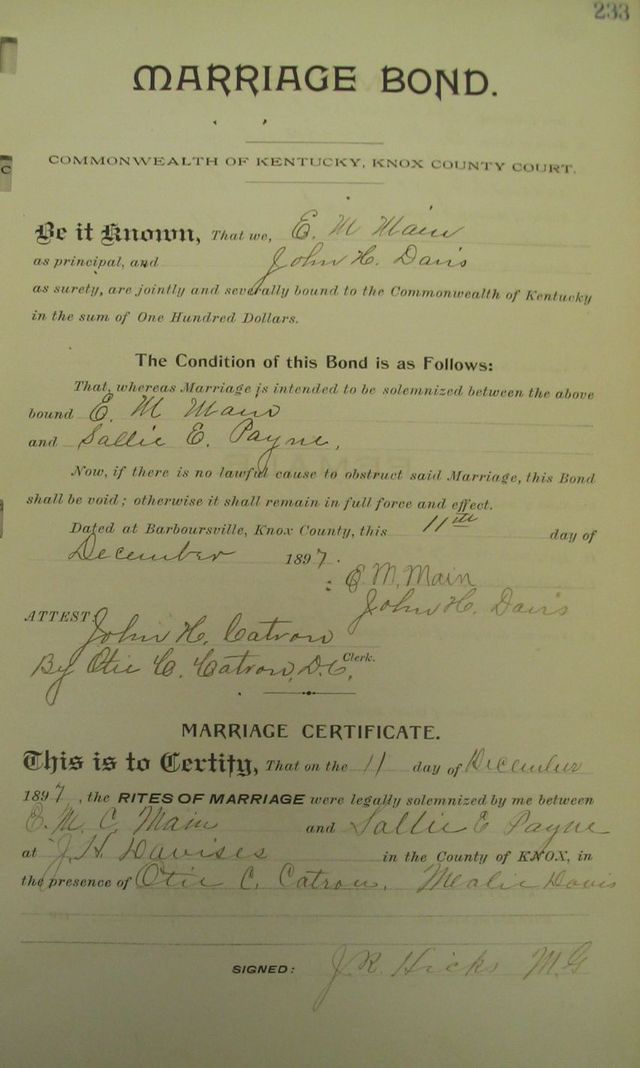 233
MARRIAGE BOND.
COMMONWEALTH OF KENTUCKY, KNOX COUNTY COURT.
Be it Known, That we, E. M Main
as principal, and John H. Davis
as surety, are jointly and severally bound to the Commonwealth of Kentucky
in the sum of One Hundred Dollars.
The Condition of this Bond is as Follows:
That, whereas Marriage is intended to be solemnized between the above
bound E. M Main
and Sallie E. Payne,
Now, if there is no lawful cause to obstruct said Marriage, this Bond
shall be void; otherwise it shall remain in full force and effect.
Dated at Barboursville, Knox County, this 11th day of
December 1897.
E M, Main
John H. Davis
ATTEST: John H. Catron
Clerk.
By Otie C. Catron, D.C,
MARRIAGE CERTIFICATE.
This is to Certify, That on the 11 day of December
1897, the RITES OF MARRIAGE were legally solemnized by me between
E. M. C. Main and Sallie E Payne
at J. H Davises in the County of KNOX, in
the presence of Otie C. Catron, Mealie Davis
SIGNED: J. R. Hicks M.G